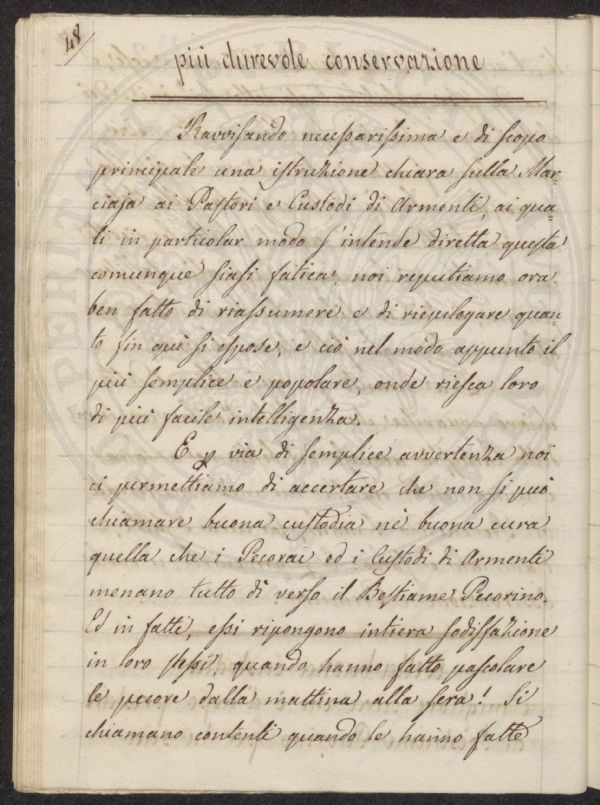 48
più durevole conservazione
Ravvisando necessarissima e di scopo
principale una istruzione chiara sulla Mar-
ciaja ai Pastori e Custodi di Armenti, ai qua-
li in particolar modo s'intende diretta questa
comunque siasi fatica, noi reputiamo ora
ben fatto di riassumere e di riepilogare quan-
to fin quì si espose, e ciò nel modo appunto il
più semplice e popolare, onde riesca loro
di più facile intelligenza.
E p via di semplice avvertenza noi
ci permettiamo di accertare che non si può
chiamare buona custodia nè buona cura
quella che i Pecorai ed i Custodi di Armenti
menano tutto dì verso il Bestiame Pecorino.
Ed in fatti, essi ripongono intiera sodisfazione
in loro stessi, quando hanno fatto pascolare
le pecore dalla mattina alla sera! Si
chiamano contenti quando le hanno fatte